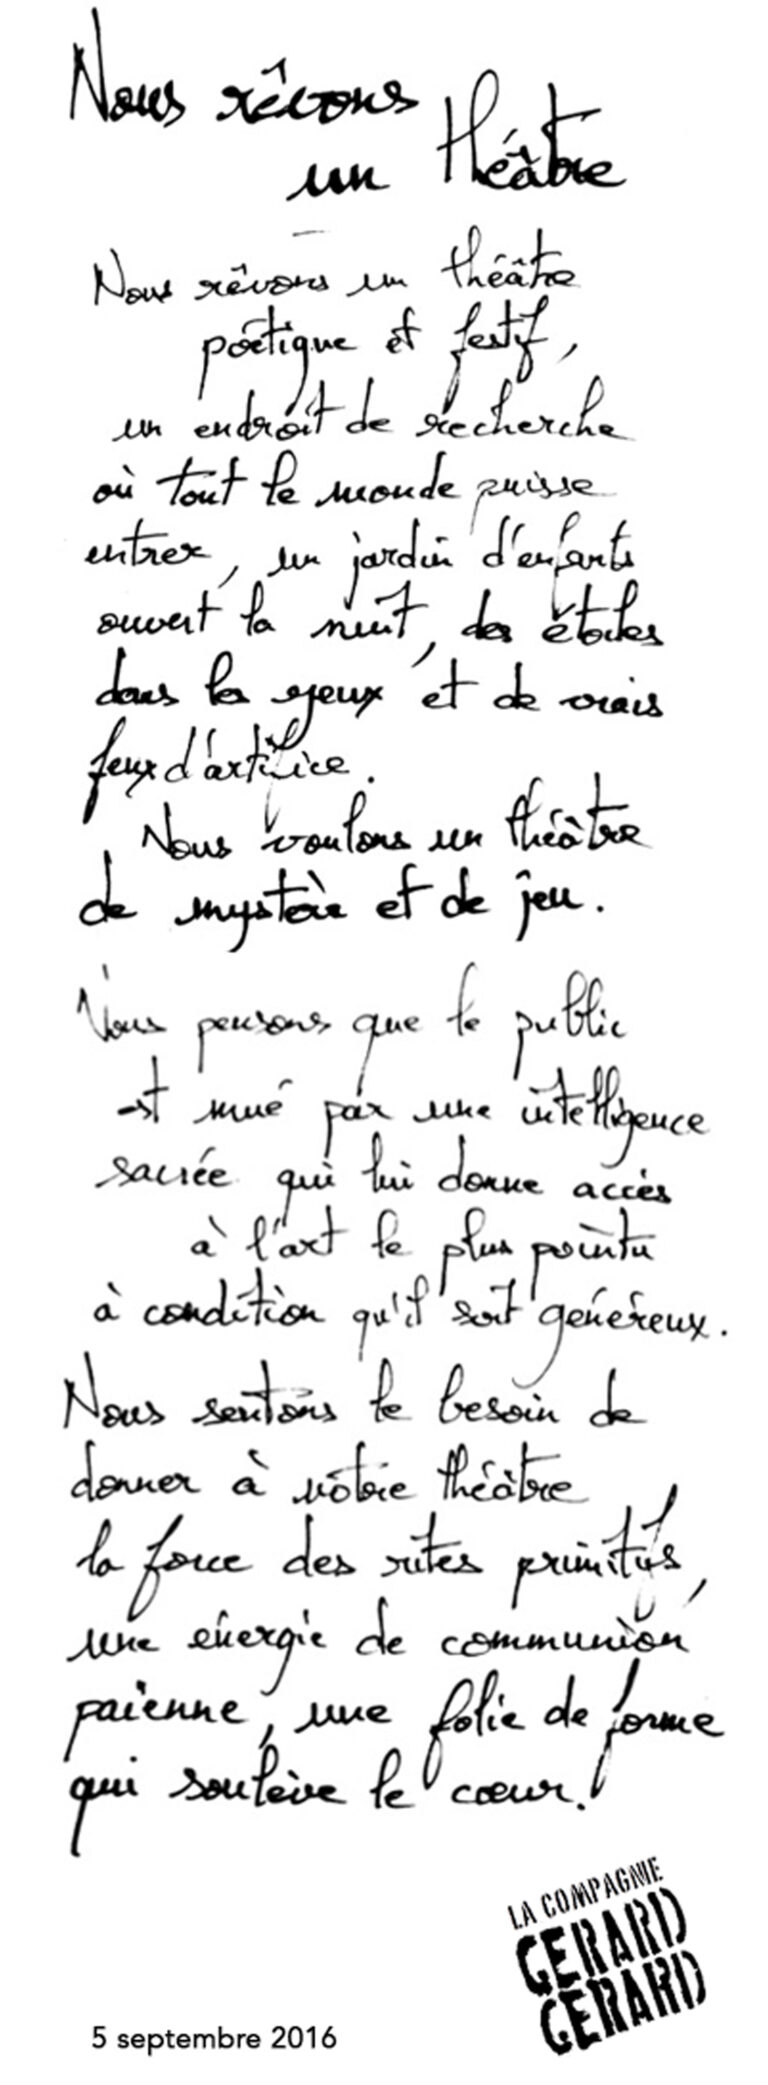 Nous rêvons
un théâtre
Nous rêvons un théâtre
poétique et festif,
un endroit de recherche
où tout le monde puisse
entrer, un jardin d'enfants
ouvert la nuit, des étoiles
dans les yeux et de vrais
feux d'artifice.
Nous voulons un théâtre
de mystère et de jeu.
Nous pensons que le public
est mué par une intelligence
sacrée qui lui donne accès
à l'art le plus pointu
à condition qu'il soit généreux.
Nous sentons le besoin de
donner à notre théâtre
la force des rites primitifs,
une énergie de communion
païenne, une folie de forme
qui soulève le cœur.
LA COMPAGNIE
GERARD
GERARD
5 septembre 2016